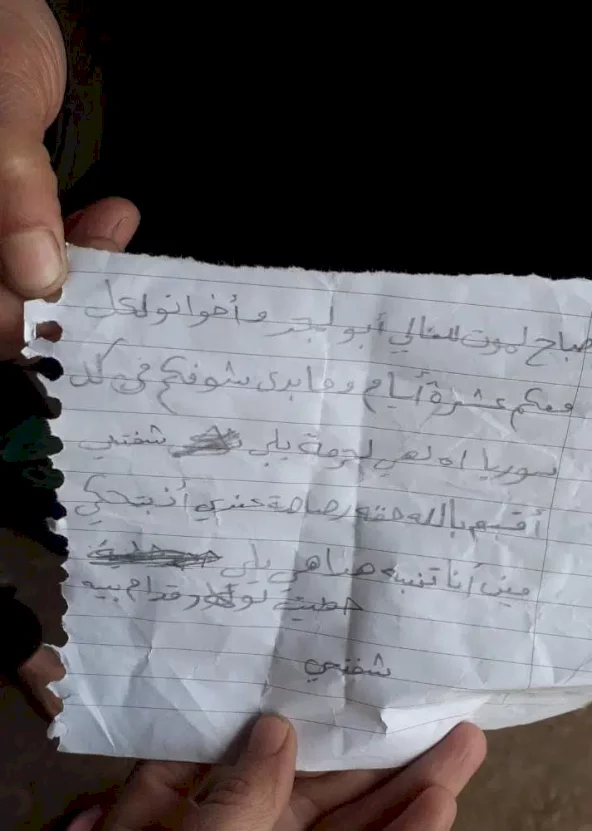 صباح لموت للغالي أبو لمجد وأخواتو لكل
معكم عشرة أيام وما بدي شوفكم في كل
سوريا اه لهي لجرمة يلي شفتي
أقسم بالله حقه رصاصة عندي أنتحكي
مين أنا تنبه هاهي يلي
حطيت لو قدام بيه
شفتي